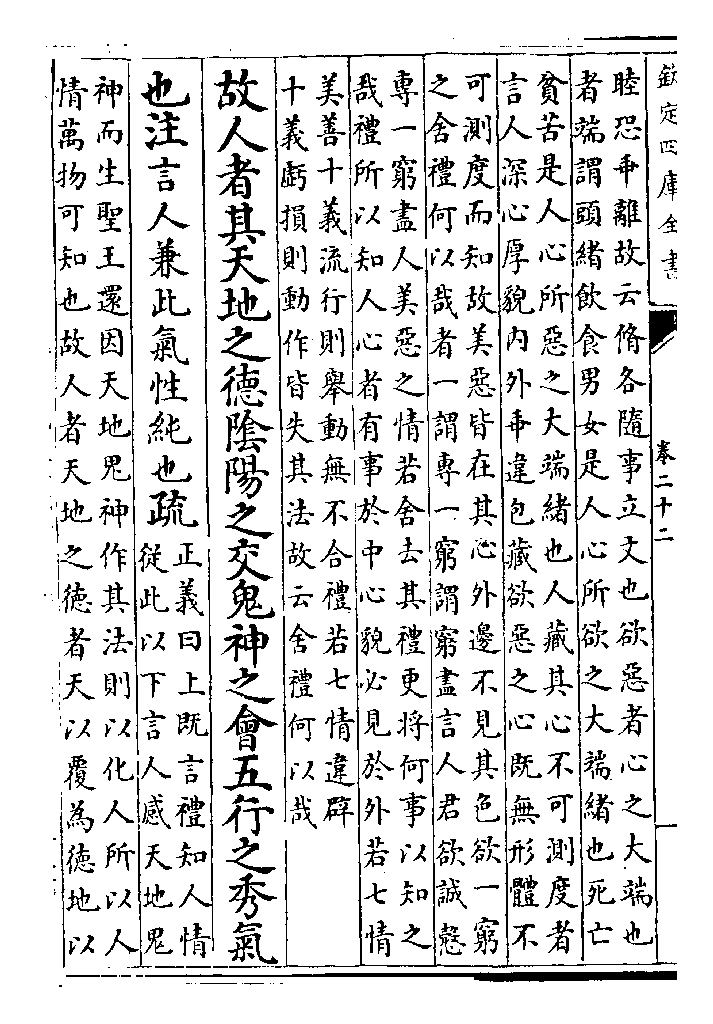 欽定四庫全書
卷二十二
睦恐乖離故云脩各隨事立文也欲惡者心之大端也
者端謂頭緒飲食男女是人心所欲之大端緒也死亡
貧苦是人心所惡之大端緒也人藏其心不可測度者
言人深心厚貌內外乖違包藏欲惡之心既無形體不
可測度而知故美惡皆在其心外邊不見其色欲一窮
之舍禮何以哉者一謂專一窮謂窮盡言人君欲誠慤
專一窮盡人美惡之情若舍去其禮更將何事以知之
哉禮所以知人心者有事於中心貌必見於外若七情
美善十義流行則舉動無不合禮若七情違辟
十義虧損則動作皆失其法故云舍禮何以哉
故人者其天地之德陰陽之交鬼神之會五行之秀氣
也注言人兼此氣性純也疏
正義曰上既言禮知人情
從此以下言人感天地鬼
神而生聖王還因天地鬼神作其法則以化人所以人
情萬物可知也故人者天地之德者天以覆為德地以